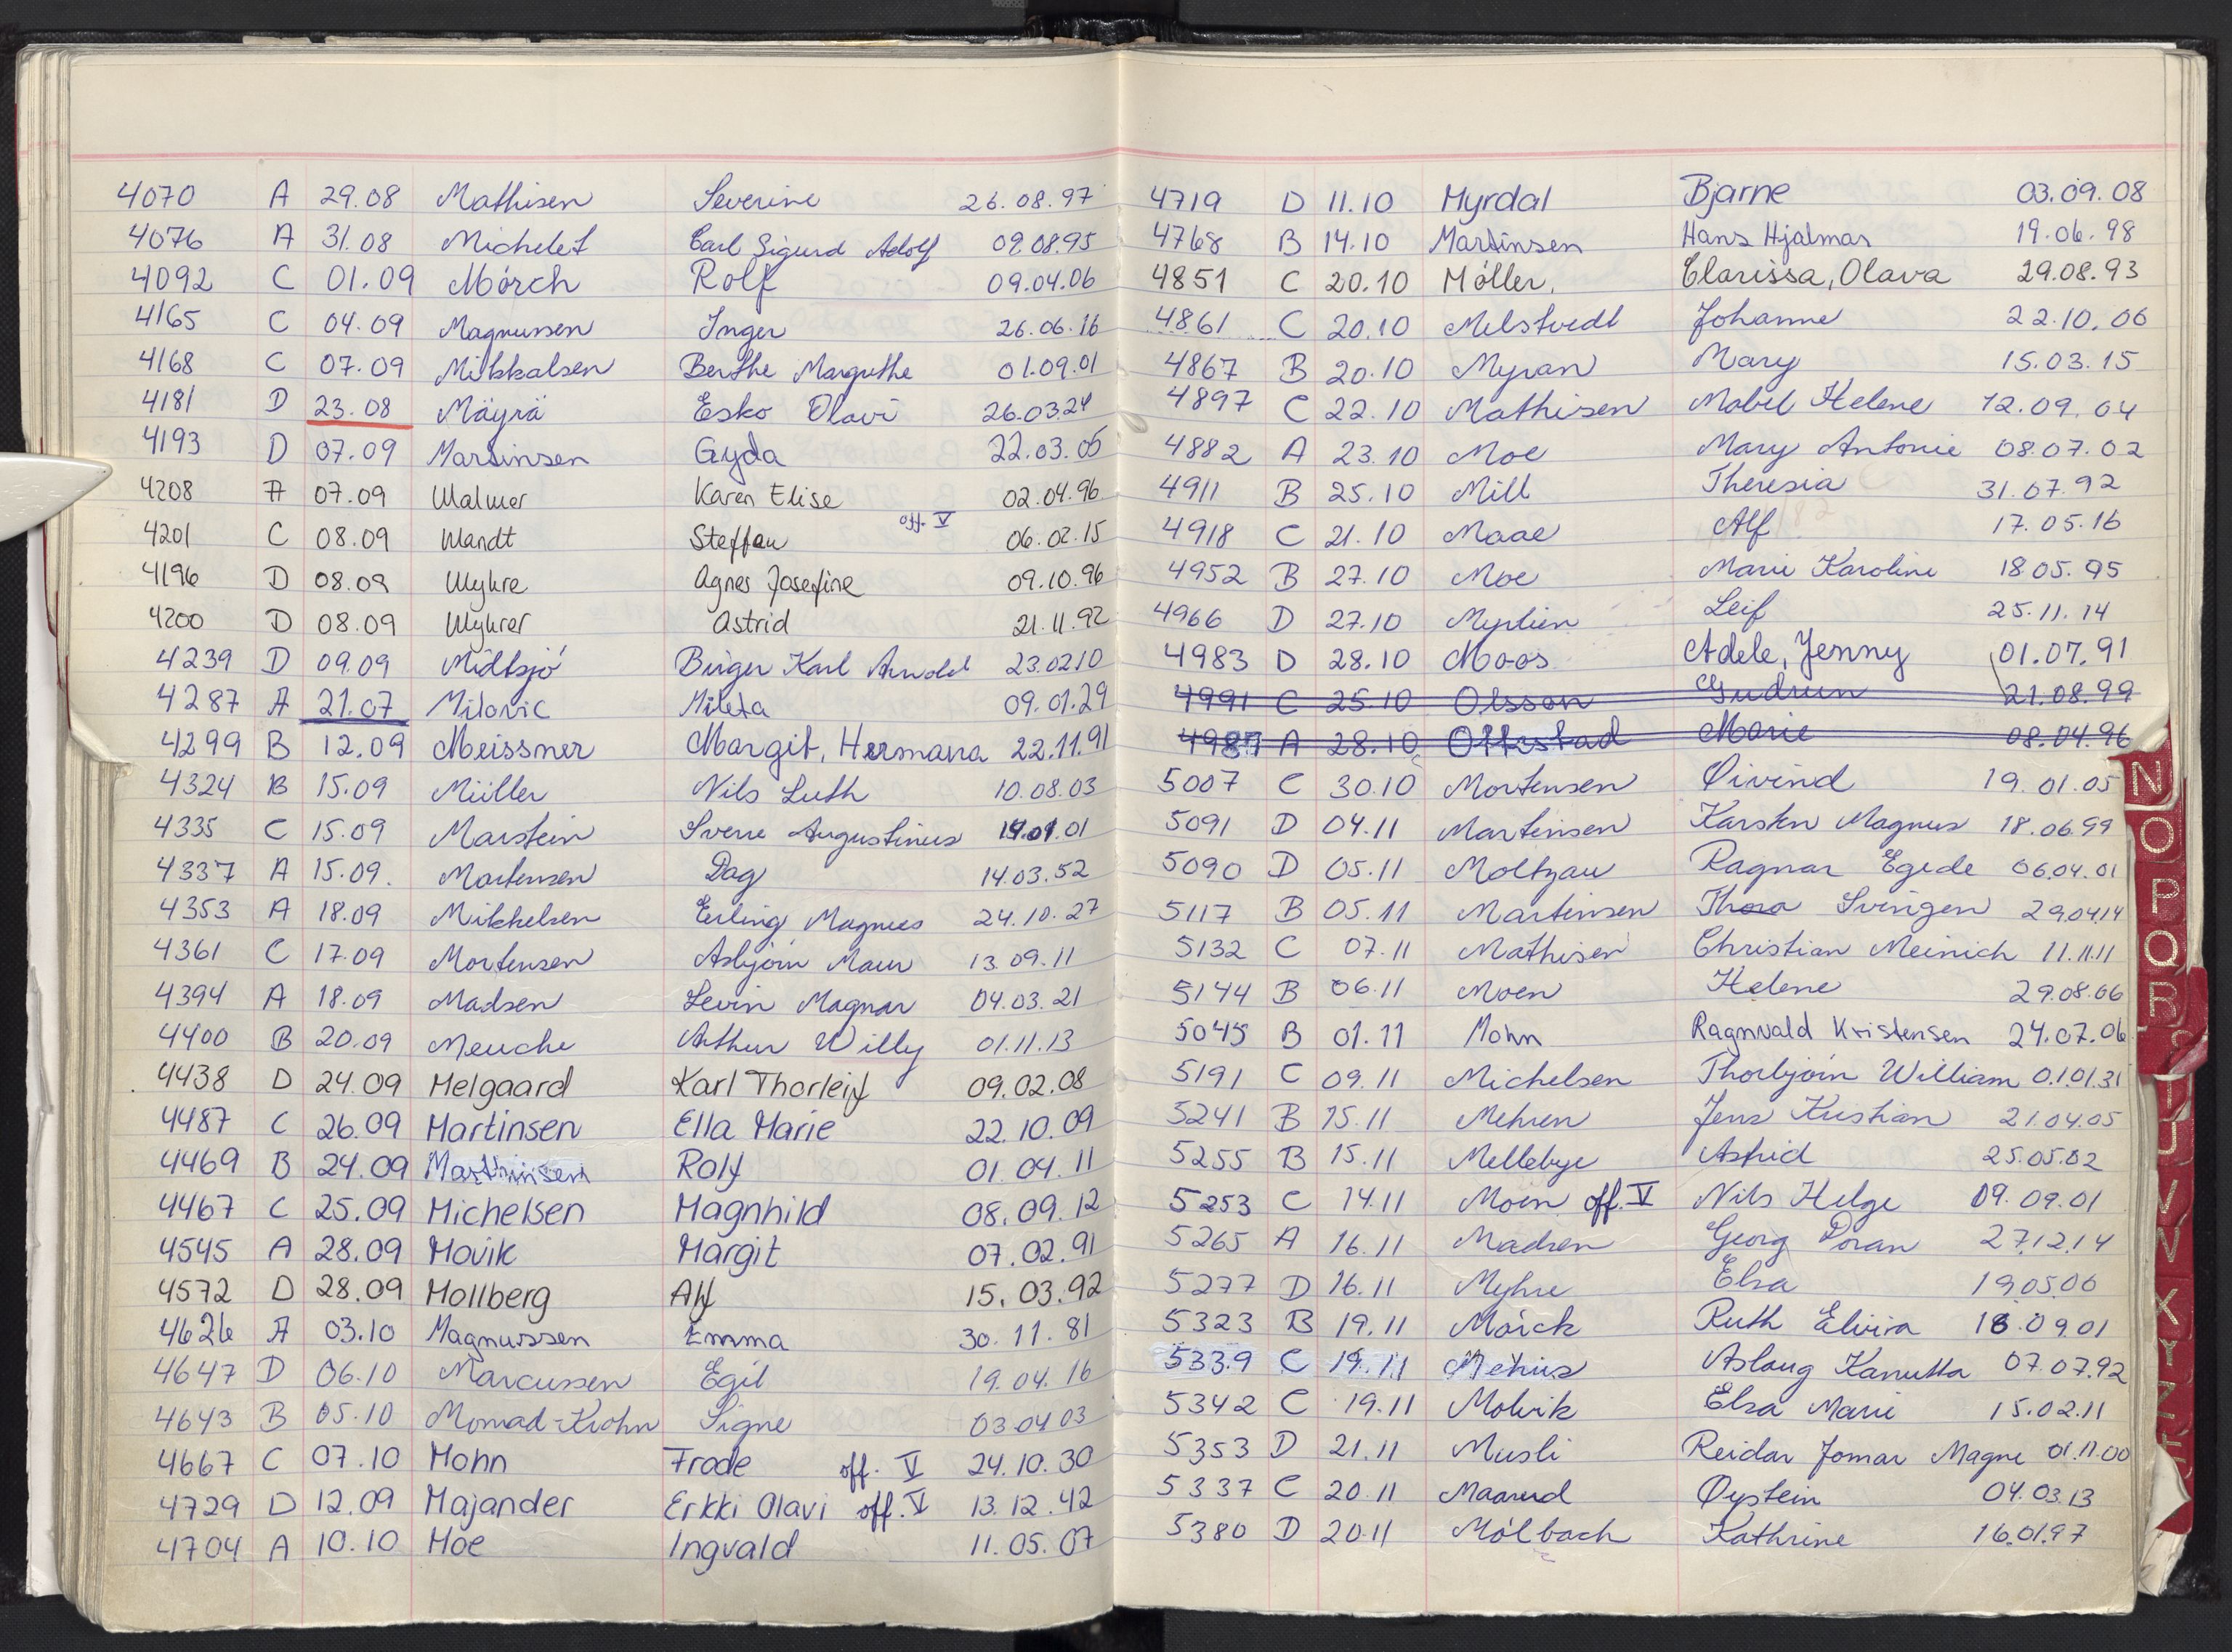 4070 A 29.08 Mathisen Severine 26.08.97
4076 A 31.08 Michelet Carl Sigurd Adolf 09.08.95
4092 C 01.09 Mórch Rolf 09.04.06
4165 C 04.09 Magnussen Inger 26.06.16
4168 C 07.09 Mikkalsen Berthe Margrethe 01.09.01
4181 D 23.08 Mäyrä Esko Olavi 26.03.24
4193 D 07.09 Martinsen Gyda 22.03.05
4208 A 07.09 Malmer Karen Elise 02.04.96
4201 C 08.09 Mandt Steffen off. V 06.02.15
4196 D 08.09 Myhre Agnes Josefine 09.10.96
4200 D 08.09 Myhrer Astrid 21.11.92
4239 D 09.09 Midtsjó Birger Karl Arnold 23.02.10
4287 A 21.07 Milovic Mileta 09.01.29
4299 B 12.09 Meissner Margit, Hermana 22.11.91
4324 B 15.09 Müller Nils Luth 10.08.03
4335 C 15.09 Marstein Sverre Augustinus 01.01
4337 A 15.09. Mortensen Dag 14.03.52
4353 A 18.09 Mikkelsen Erling Magnus 24.10.27
4361 C 17.09 Mortensen Asbjórn Maur 13.09.11
4394 A 18.09 Madsen Levin Magnar 04.03.21
4400 B 20.09 Meuche Arthur Willy 01.11.13
4438 D 24.09 Melgaard Karl Thorleif 09.02.08
4487 C 26.09 Martinsen Ella Marie 22.10.09
4469 B 24.09 Marthinsen Rolf 01.04.11
4467 C 25.09 Michelsen Magnhild 08.09.12
4545 A 28.09 Movik Margit 07.02.91
4572 D 28.09 Mollberg Alf 15.03.92
4626 A 03.10 Magnussen Emma 30.11.81
4647 D 06.10 Marcussen Egil 19.04.16
4643 B 05.10 Momad-Krohn Signe 03.04.03
4667 C 07.10 Mohn Frode off. V 24.10.30
4729 D 12.09 Majander Erkki Olavi off. V 13.12.42
4704 A 10.10 Moe Ingvald 11.05.07
4719 D 11.10 Myrdal Bjarne 03.09.08
4768 B 14.10 Martinsen Hans Hjalmar 19.06.98
4851 C 20.10 Móller, Clarissa, Olava 29.08.93
4861 C 20.10 Melstvedt Johanne 22.10.06
4867 B 20.10 Myran Mary 15.03.15
4897 C 22.10 Mathisen Mabel Helene 12.09.04
4882 A 23.10 Moe Mary Antonie 08.07.02
4911 B 25.10 Mill Theresia 31.07.92
4918 C 21.10 Maae Alf 17.05.16
4952 B 27.10 Moe Marie Karoline 18.05.95
4966 D 27.10 Myrlien Leif 25.11.14
4983 D 28.10 Moos Adele, Jenny 01.07.91
4991 C 25.10 Olsson Gudrun 21.08.99
4987 A 28.10 Offistad Marie 08.04.96
5007 C 30.10 Mortensen Øivind 19.01.05
5091 D 04.11 Martinsen Karsten Magnus 18.06.99
5090 D 05.11 Moltzau Ragnar Egede 06.04.01
5117 B 05.11 Martinsen Thora Svingen 29.04.14
5132 C 07.11 Mathisen Christian Meinich 11.11.11
5144 B 06.11 Moen Helene 29.08.06
5045 B 01.11 Mohn Ragnvald Kristensen 24.07.06
5191 C 09.11 Michelsen Thorbjórn William 01.01.31
5241 B 15.11 Mehren Jens Kristian 21.04.05
5255 B 15.11 Mellebye Astrid 25.05.02
5253 C 14.11 Moen off. V Nils Helge 09.09.01
5265 A 16.11 Madsen Georg 27.12.14
5277 D 16.11 Myhre Elsa 19.05.06
5323 B 19.11 Mórck Ruth Elvira 18.09.01
5339 C 19.11 Mehus Aslaug Kanutta 07.07.92
5342 C 19.11 Molvik Elsa Marie 15.02.11
5353 D 21.11 Musli Reidar Jomar Magne 01.11.00
5337 C 20.11 Maarud Øystein 04.03.13
5380 D 20.11 Mólbach Kathrine 16.01.97
N
O
P
Q
R
U
V
X
Y
Z